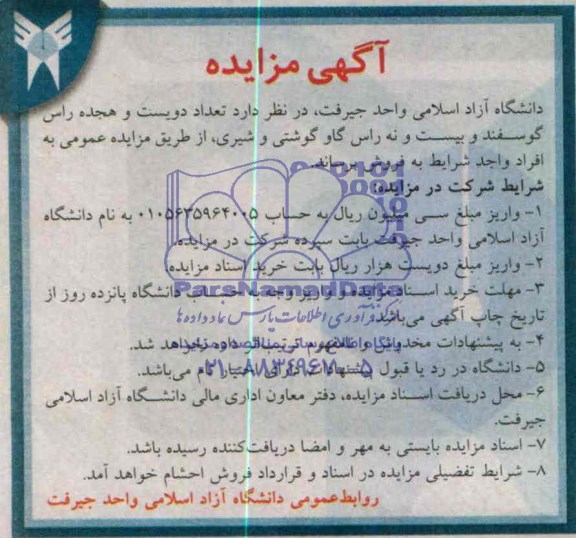 آگهی مزایده
دانشگاه آزاد اسلامی واحد جیرفت، در نظر دارد تعداد دویست و هجده راس
گوسفند و بیست و نه راس گاو گوشتی و شیری، از طریق مزایده عمومی به
افراد واجد شرایط به فروش برساند.
شرایط شرکت در مزایده:
۱- واریز مبلغ سی میلیون ریال به حساب ۰۱۰۵۶۳۵۹۶۴۰۰۵ به نام دانشگاه
آزاد اسلامی واحد جیرفت بابت سپرده شرکت در مزایده.
۲- واریز مبلغ دویست هزار ریال بابت خرید اسناد مزایده
ParsNamadData
۳- مهلت خرید اسناد مزایده و واریز وجه به حساب دانشگاه پانزده روز از
تاریخ چاپ آگهی می‌باشد.
۴- به پیشنهادات مخدوش و داده نخواهد شد.
۰۲۱-۸۸۳۴۹۶۷۰-۵
۵- دانشگاه در رد یا قبول پیشنهادات دارای اختیار تام می‌باشد.
۶- محل دریافت اسناد مزایده، دفتر معاون اداری مالی دانشگاه آزاد اسلامی
جیرفت.
۷- اسناد مزایده بایستی به مهر و امضا دریافت‌کننده رسیده باشد.
۸- شرایط تفضیلی مزایده در اسناد و قرارداد فروش احشام خواهد آمد.
روابط‌عمومی دانشگاه آزاد اسلامی واحد جیرفت